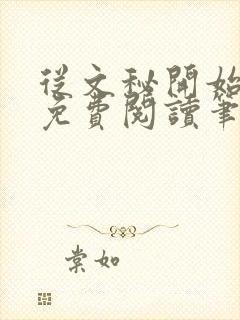 從文秘開始
免費閱讀筆
棠如